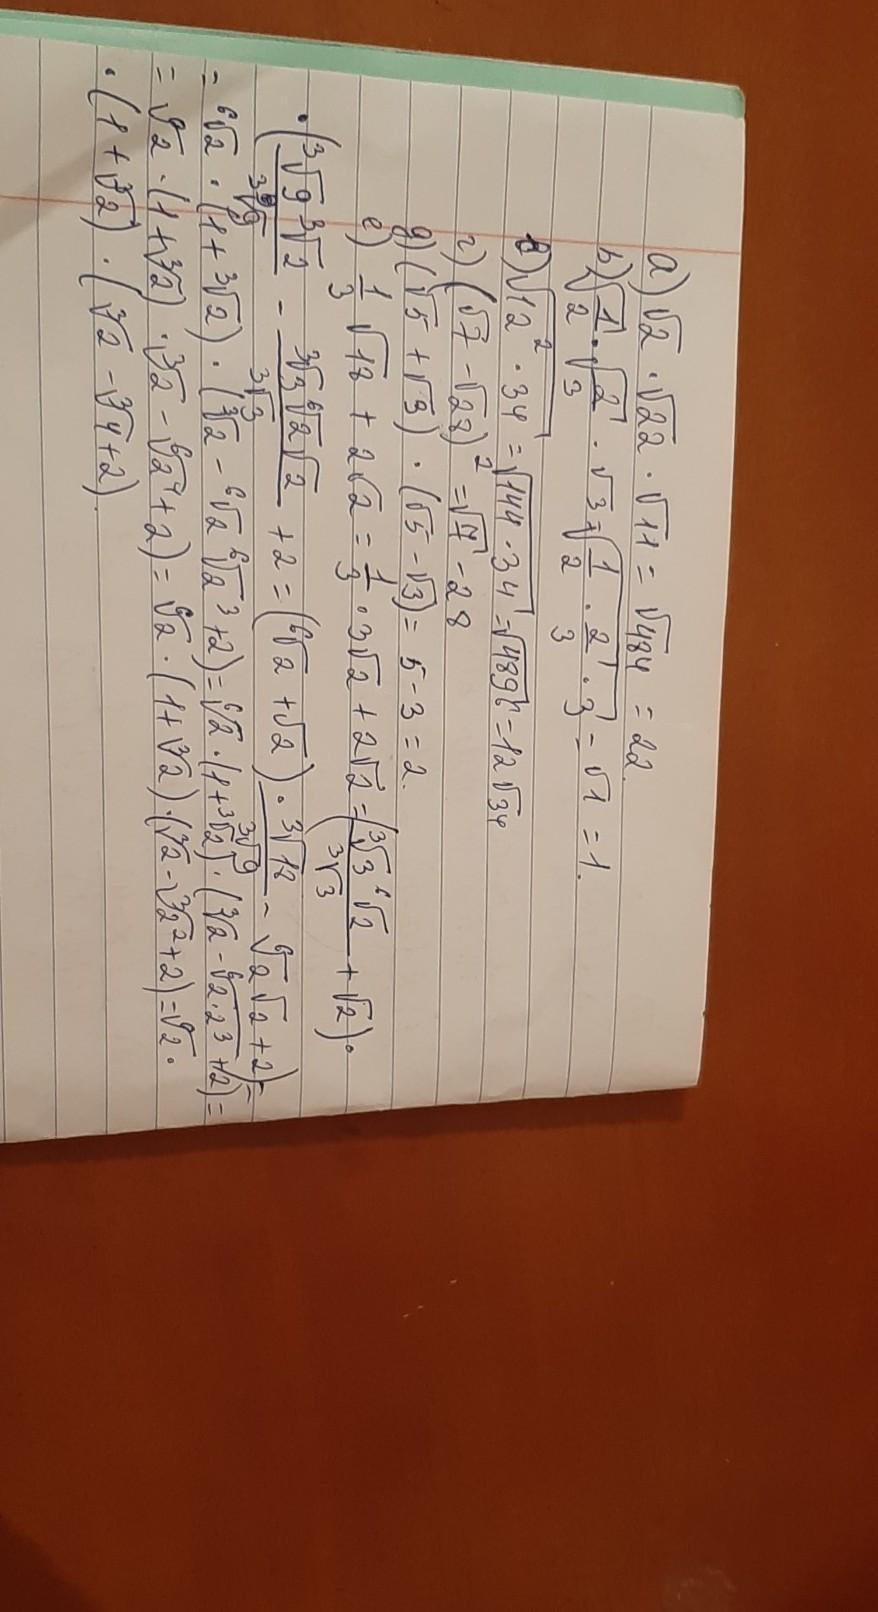 а) √2 · √22 · √11 = √484 = 22.
b) √1/2 · √2/3 · √3 = √1/2 · 2/3 · 3 = √1 = 1.
√12² · 34 = √144 · 34 = √4896 = 12√34
г) (√7 - √28)² = √7 - 28
g) (√5 + √3) · (√5 - √3) = 5 - 3 = 2.
е) 1/3 √18 + 2√2 = 1/3 · 3√2 + 2√2 = (∛3 ⁶√2/∛3 + √2) ·
· (∛9 ∛2/∛9 - ∛3 ⁶√2 √2/∛3 + 2 = (⁶√2 + √2) · ∛18/∛9 - ⁶√2 √2 + 2) =
= ⁶√2 · (1 + ∛2) · (∛2 - ⁶√2 ⁶√2³ + 2) = ⁶√2 · (1 + ∛2) · (∛2 - ⁶√2 · 2³ + 2) =
= ⁶√2 · (1 + ∛2) · ∛2 - ⁶√2⁴ + 2) = ⁶√2 · (1 + ∛2) · (∛2 - ∛2² + 2) = ⁶√2 ·
· (1 + ∛2) · (∛2 - ∛4 + 2)